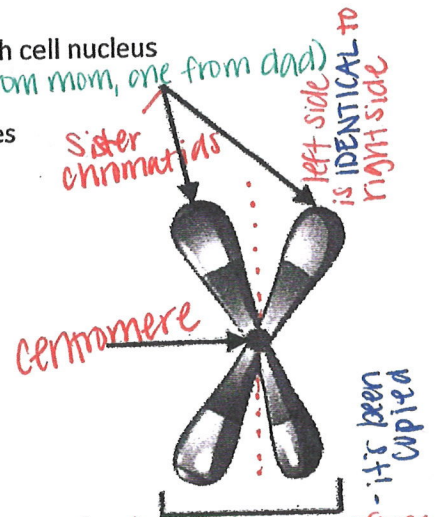 h cell nucleus
om mom, one from dad)
es
sister
chromatids
left side
is IDENTICAL to
right side
centromere
- it's been
copied